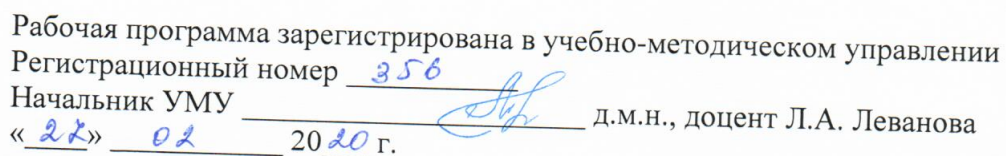 Рабочая программа зарегистрирована в учебно-методическом управлении
Регистрационный номер 356
Начальник УМУ д.м.н., доцент Л.А. Леванова
«27» 02 2020 г.